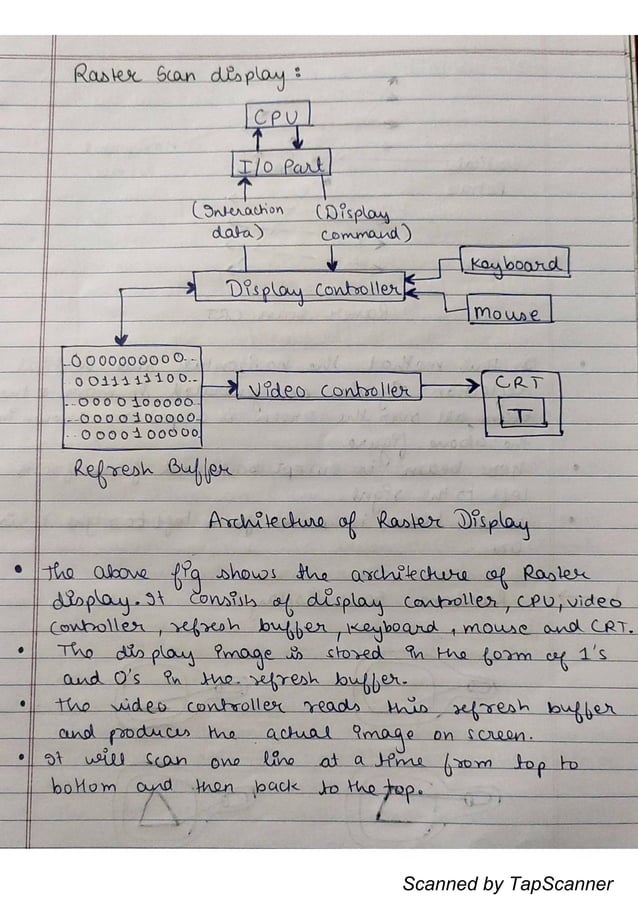 Raster Scan display:
CPU
I/O Part
(Interaction
data)
(Display
command)
Keyboard
Display Controller
mouse
..0000000000..
0011111100..
..0000100000..
..0000100000..
..0000100000
Video Controller
CRT
T
Refresh Buffer
Architecture of Raster Display
• The above fig shows the architecture of Raster
display. It consists of display controller, CPU, video
controller, refresh buffer, keyboard, mouse and CRT.
• The display image is stored in the form of 1's
and 0's in the refresh buffer.
• The video controller reads this refresh buffer
and produces the actual image on screen.
• It will scan one line at a time from top to
bottom and then back to the top.
Scanned by TapScanner